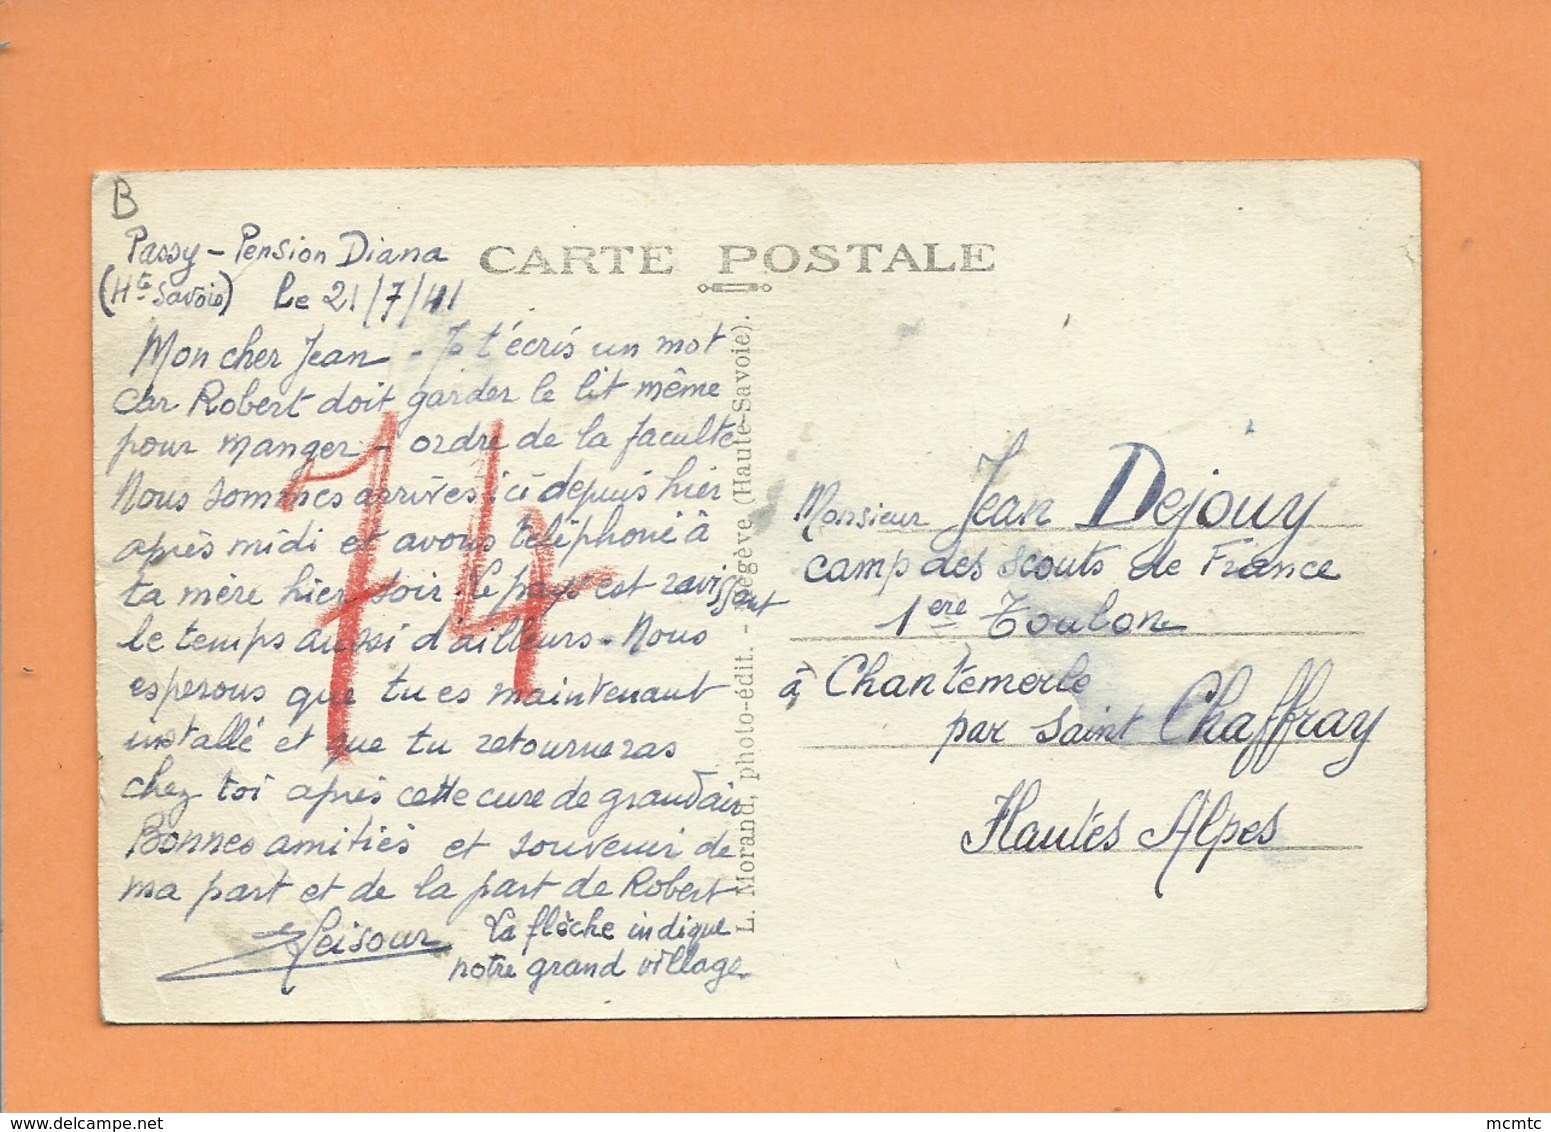 B
Passy - Pension Diana
(Hte Savoie) Le 21/7/41
CARTE POSTALE
Mon cher Jean - Je t'écris un mot
car Robert doit garder le lit même
pour manger - ordre de la faculté
Nous sommes arrivés ici depuis hier
après midi et avons téléphoné à
ta mère hier soir. Le pays est ravissant
le temps aussi d'ailleurs. Nous
esperons que tu es maintenant
installé et que tu retourneras
chez toi après cette cure de grand air
Bonnes amitiés et souvenir de
ma part et de la part de Robert
La flèche indique
notre grand village.
74
L. Morand, photo-édit. - Megève (Haute-Savoie).
Monsieur Jean Dejouy
camp des scouts de France
1ere Toulon
à Chantemerle
par Saint Chaffray
Hautes Alpes
mcmtc